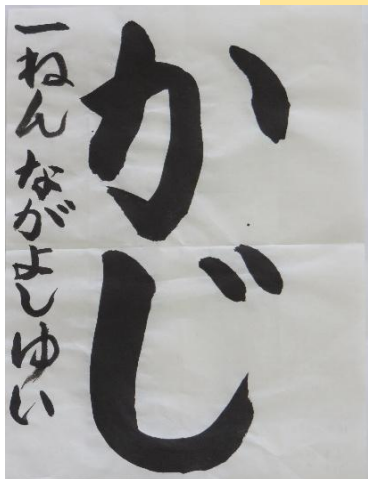 かじ
一ねん ながよしゆい